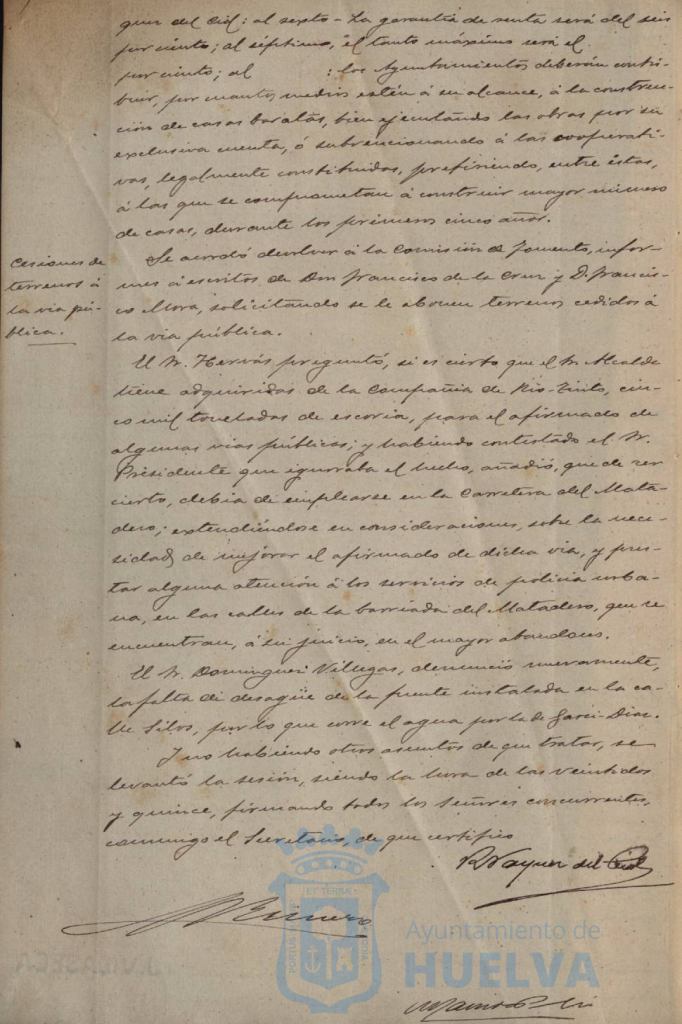 quez del Cid: al sexto - La garantía de renta será del seis
por ciento; al séptimo, el tanto máximo será el
por ciento; al : los Ayuntamientos deberán contri-
buir, por cuantos medios estén á su alcance, á la construc-
ción de casas baratas, bien ejecutando las obras por su
exclusiva cuenta, ó subvencionando á las cooperati-
vas, legalmente constituidas, prefiriendo, entre éstas,
á las que se comprometan á construir mayor número
de casas, durante los primeros cinco años.
Cesiones de
terrenos á
la via pú-
blica.
Se acordó devolver á la Comisión de Fomento, infor-
mes á escritos de Don Francisco de la Cruz y D. Francis-
co Mora, solicitando se le abonen terrenos cedidos á
la via pública.
El Sr. Hervás preguntó, si es cierto que el Sr. Alcalde
tiene adquiridas de la Compañia de Rio-Tinto, cin-
co mil toneladas de escoria, para el afirmado de
algunas vias públicas; y habiendo contestado el Sr.
Presidente que ignoraba el hecho, añadió, que de ser
cierto, debia de emplearse en la Carretera del Mata-
dero; extendiéndose en consideraciones, sobre la nece-
sidad de mejorar el afirmado de dicha via, y pres-
tar alguna atención á los servicios de policia urba-
na, en las calles de la barriada del Matadero, que se
encuentran, á su juicio, en el mayor abandono.
El Sr. Dominguez Villegas, denunció nuevamente,
la falta de desagüe de la fuente instalada en la ca-
lle Silos, por lo que corre el agua por la de Garci-Diaz.
Y no habiendo otros asuntos de que tratar, se
levantó la sesión, siendo la hora de las veintidos
y quince, firmando todos los Señores concurrentes,
conmigo el Secretario, de que certifico
Vazquez del Cid
PORTUS MARIS ET TERRAE CUSTODIA
Ayuntamiento de
HUELVA